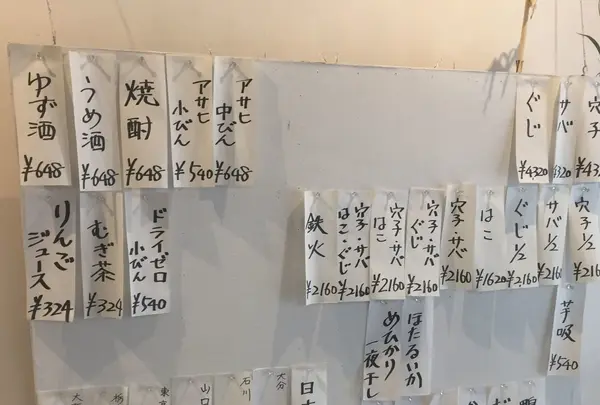 ゆず酒
¥648
うめ酒
¥648
焼酎
¥648
アサヒ
小びん
¥540
アサヒ
中びん
¥648
ぐじ
¥4320
サバ
4320
穴子
¥432
りんご
ジュース
¥324
むぎ茶
¥324
ドライゼロ
小びん
¥540
鉄火
¥2160
穴子・サバ
はこ・ぐじ
¥2160
穴子・サバ
はこ
¥2160
穴子・サバ
ぐじ
¥2160
穴子・サバ
¥2160
はこ
¥1620
ぐじ½
¥2160
サバ½
¥2160
穴子½
¥216
ほたるいか
めひかり
一夜干し
芋吸
¥540
大分
栃
東京
山口
石川
大分
日本